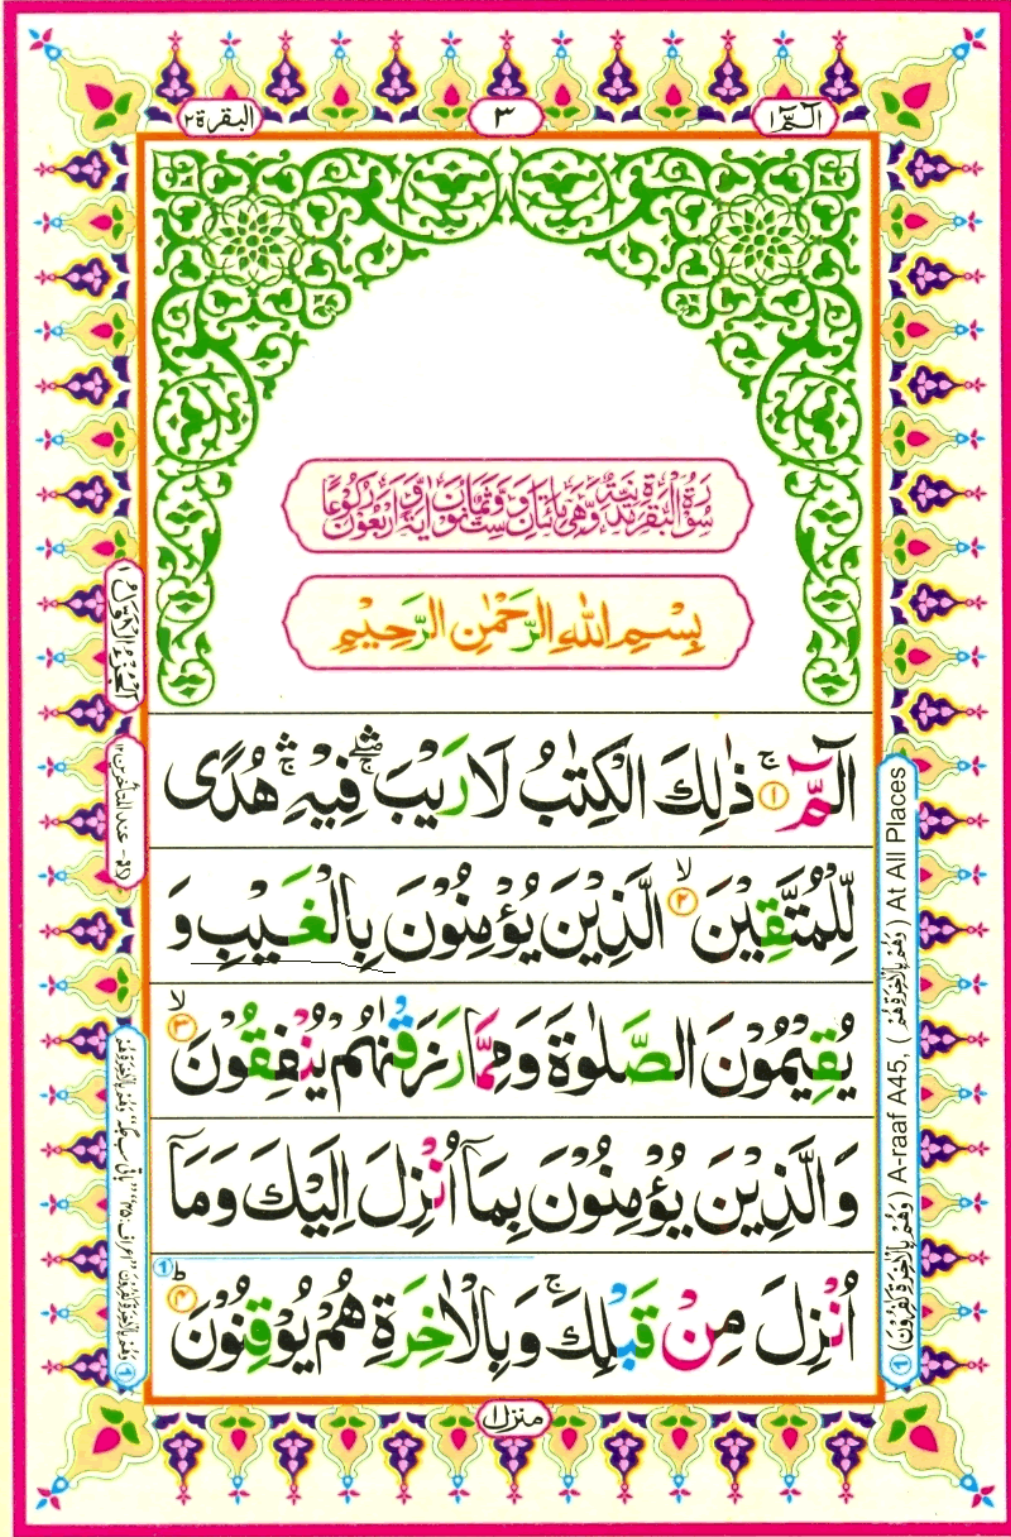 الٓمّٓ ١
٣
البقرة ٢
سُوْرَةُ الْبَقَرَةِ مَدَنِيَّةٌ وَّهِيَ مِائَتَانِ وَسِتٌّ وَّثَمَانُوْنَ اٰيَةً وَّاَرْبَعُوْنَ رُكُوْعًا
بِسْمِ اللّٰهِ الرَّحْمٰنِ الرَّحِيْمِ
الٓمّٓ ۚ‏ ١ ذٰلِكَ الْكِتٰبُ لَا رَيْبَ ۛۖۚ فِيْهِ ۛۚ هُدًى
لِّلْمُتَّقِيْنَ ۙ‏ ٢ الَّذِيْنَ يُؤْمِنُوْنَ بِالْغَيْبِ وَ
يُقِيْمُوْنَ الصَّلٰوةَ وَمِمَّا رَزَقْنٰهُمْ يُنْفِقُوْنَ ۙ‏ ٣
وَالَّذِيْنَ يُؤْمِنُوْنَ بِمَاۤ اُنْزِلَ اِلَيْكَ وَمَاۤ
اُنْزِلَ مِنْ قَبْلِكَ ۚ وَبِالْاٰخِرَةِ هُمْ يُوْقِنُوْنَ ؕ‏ ٤ ①
منزل ١
الْجُزْءُ الْاَوَّلُ ١
عند المتأخرين ١٢
① (وَهُمْ بِالْاٰخِرَةِ كٰفِرُوْنَ) A-raaf A45, (وَهُمْ بِالْاٰخِرَةِ هُمْ) At All Places